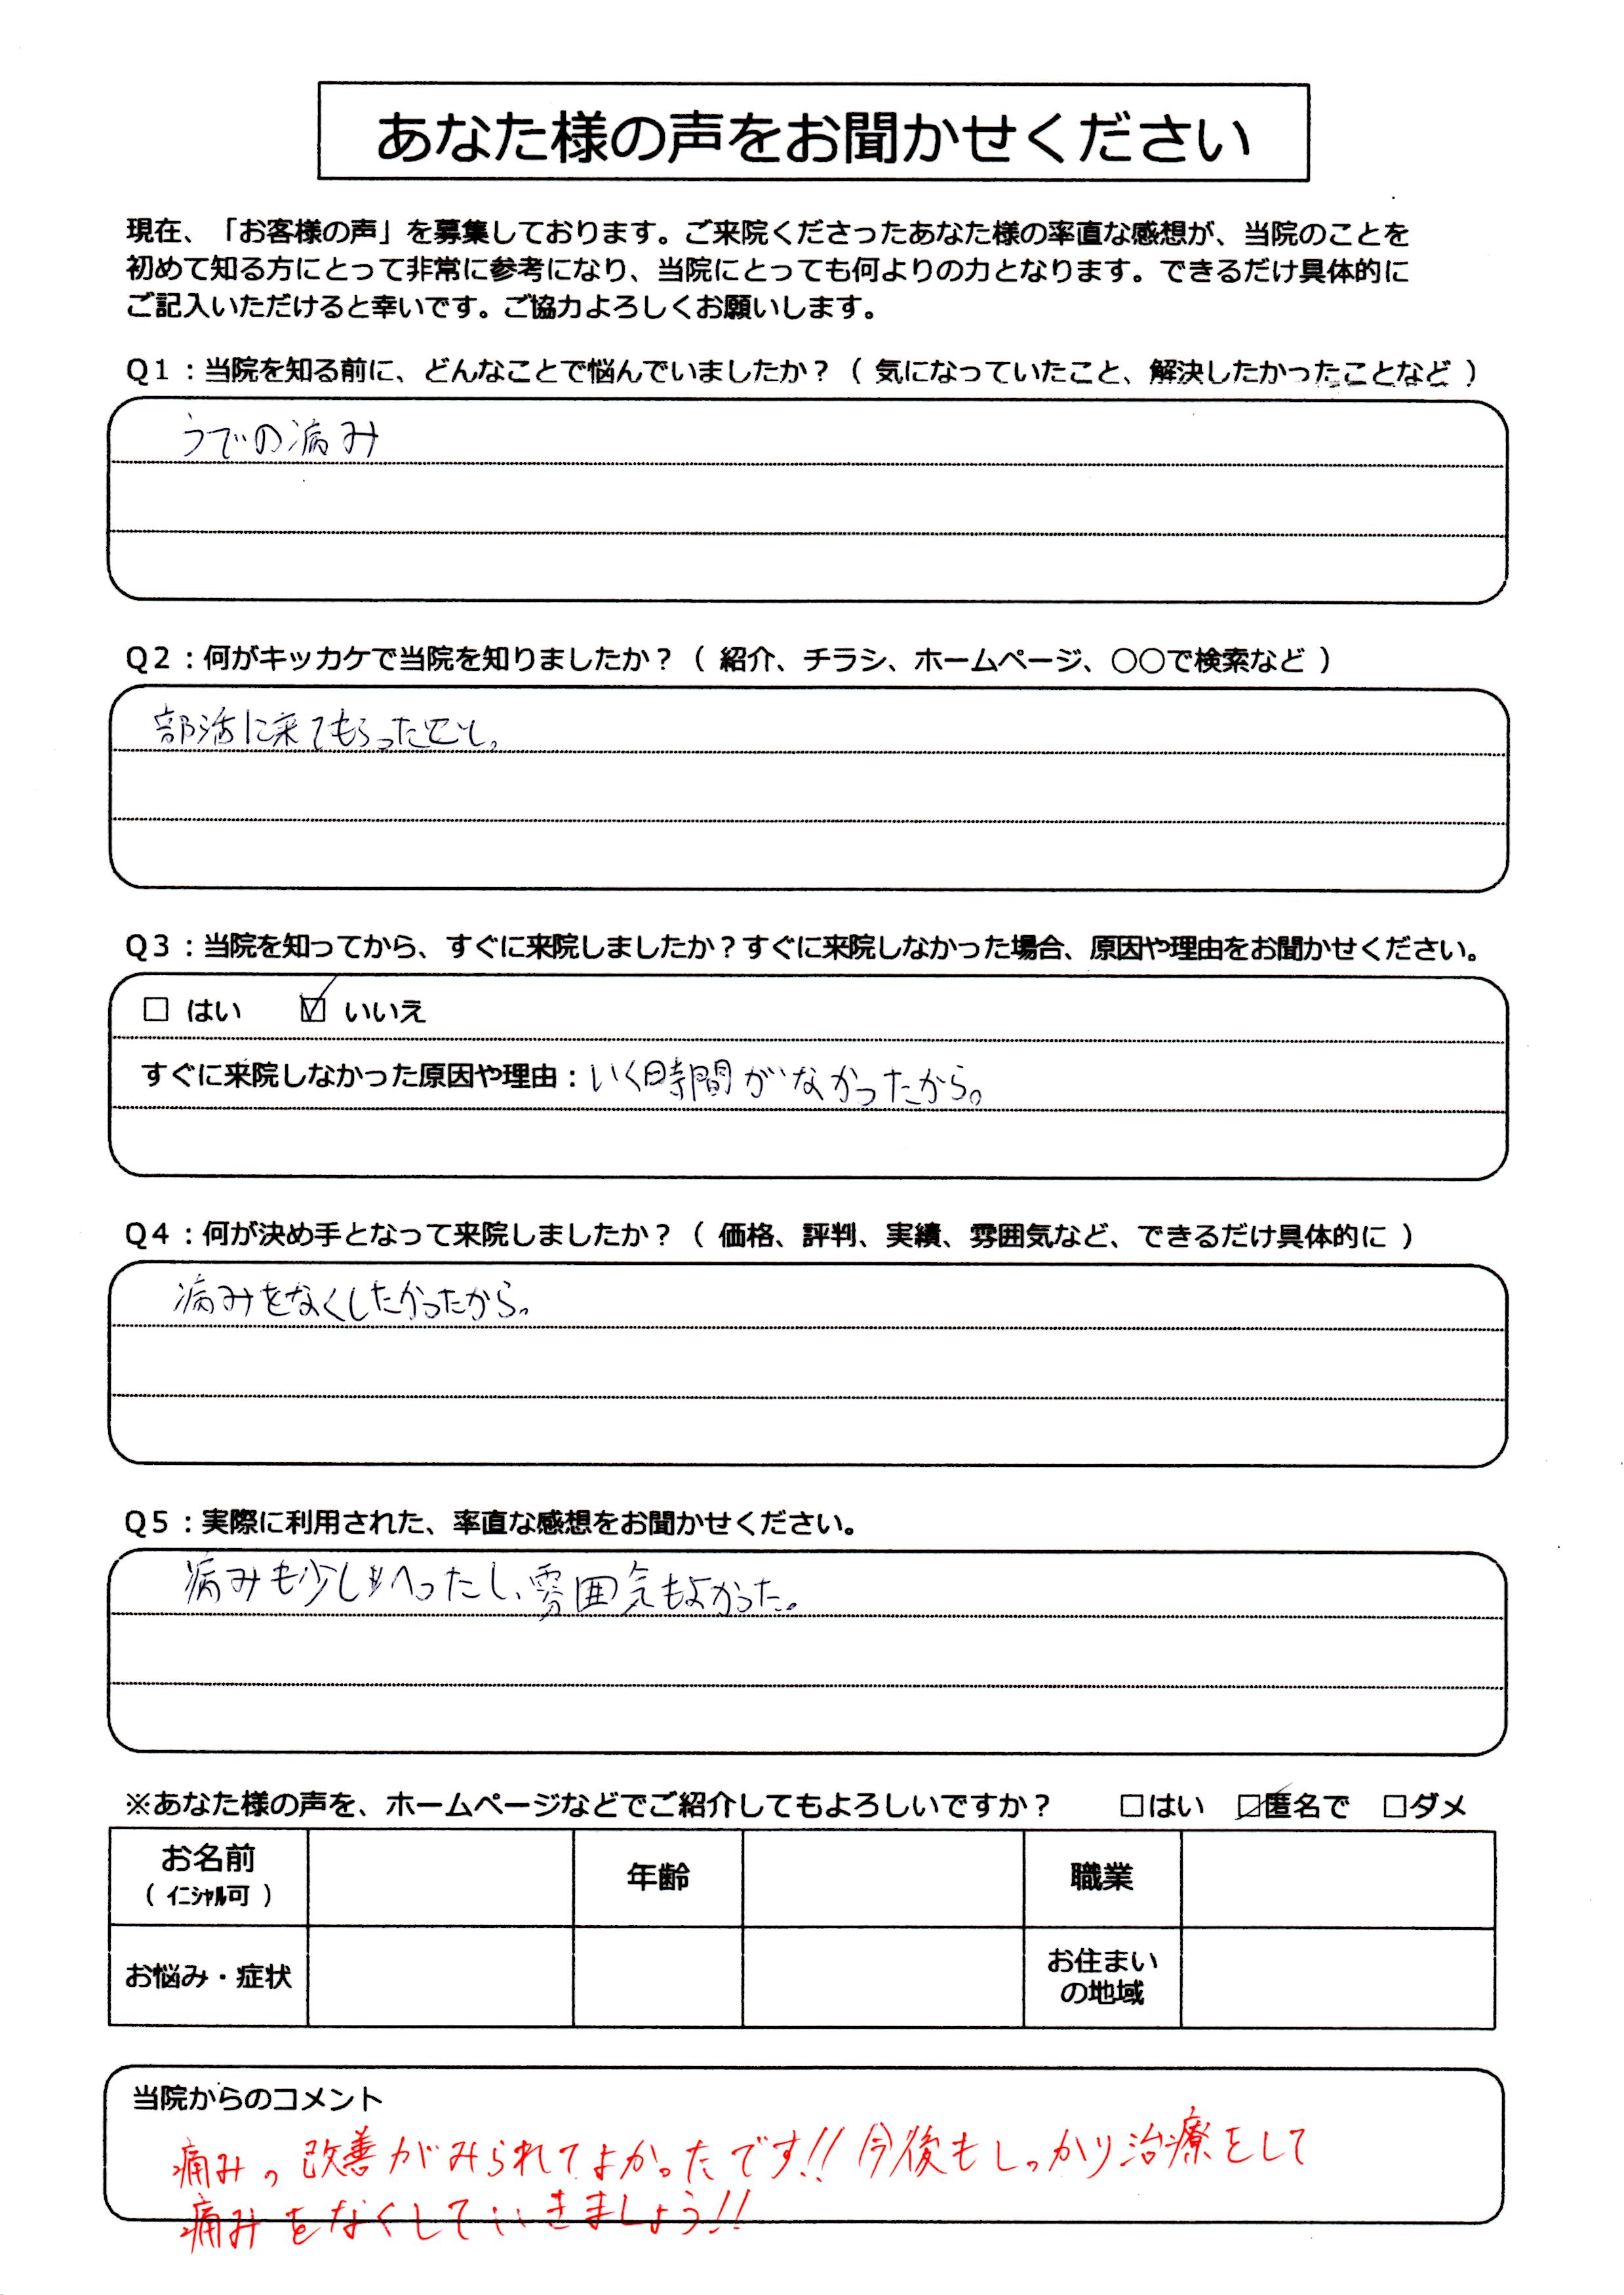 あなた様の声をお聞かせください
現在、「お客様の声」を募集しております。ご来院くださったあなた様の率直な感想が、当院のことを
初めて知る方にとって非常に参考になり、当院にとっても何よりの力となります。できるだけ具体的に
ご記入いただけると幸いです。ご協力よろしくお願いします。
Q1：当院を知る前に、どんなことで悩んでいましたか？（ 気になっていたこと、解決したかったことなど ）
うでの痛み
Q2：何がキッカケで当院を知りましたか？（ 紹介、チラシ、ホームページ、○○で検索など ）
部活に来てもらったこと。
Q3：当院を知ってから、すぐに来院しましたか？すぐに来院しなかった場合、原因や理由をお聞かせください。
□ はい ☑ いいえ
すぐに来院しなかった原因や理由：いく時間がなかったから。
Q4：何が決め手となって来院しましたか？（ 価格、評判、実績、雰囲気など、できるだけ具体的に ）
痛みをなくしたかったから。
Q5：実際に利用された、率直な感想をお聞かせください。
痛みも少しへったし、雰囲気もよかった。
※あなた様の声を、ホームページなどでご紹介してもよろしいですか？ □はい ☑匿名で □ダメ
お名前 年齢 職業
（ ｲﾆｼｬﾙ可 ）
お悩み・症状 お住まい
の地域
当院からのコメント
痛みの改善がみられてよかったです!! 今後もしっかり治療をして
痛みをなくしていきましょう!!